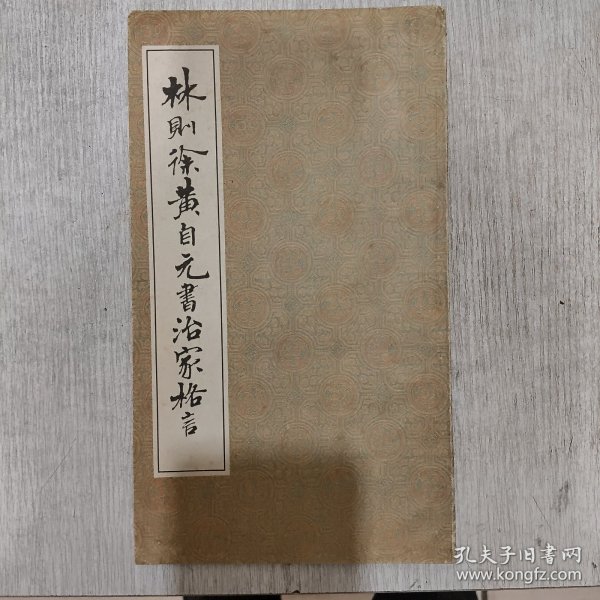 林則徐黃自元書治家格言
孔夫子旧書网
www.kongfz.com